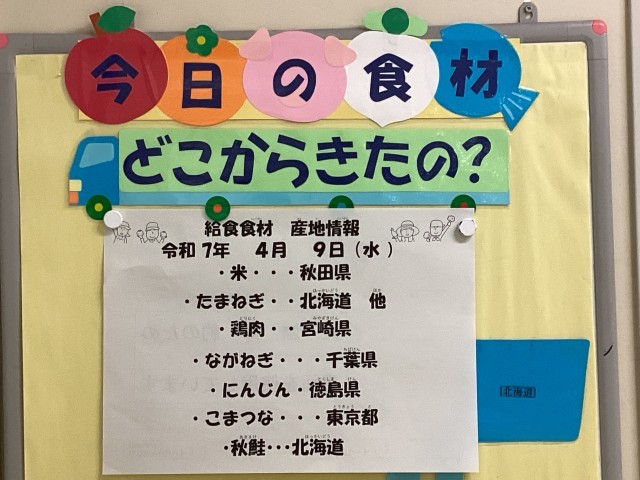 今日の食材
どこからきたの?
給食食材　産地情報
令和 7年　4月　9日（水 ）
・米・・・秋田県
・たまねぎ・・北海道　他
・鶏肉・・宮崎県
・ながねぎ・・・千葉県
・にんじん・徳島県
・こまつな・・・東京都
・秋鮭・・・北海道
(北海道)